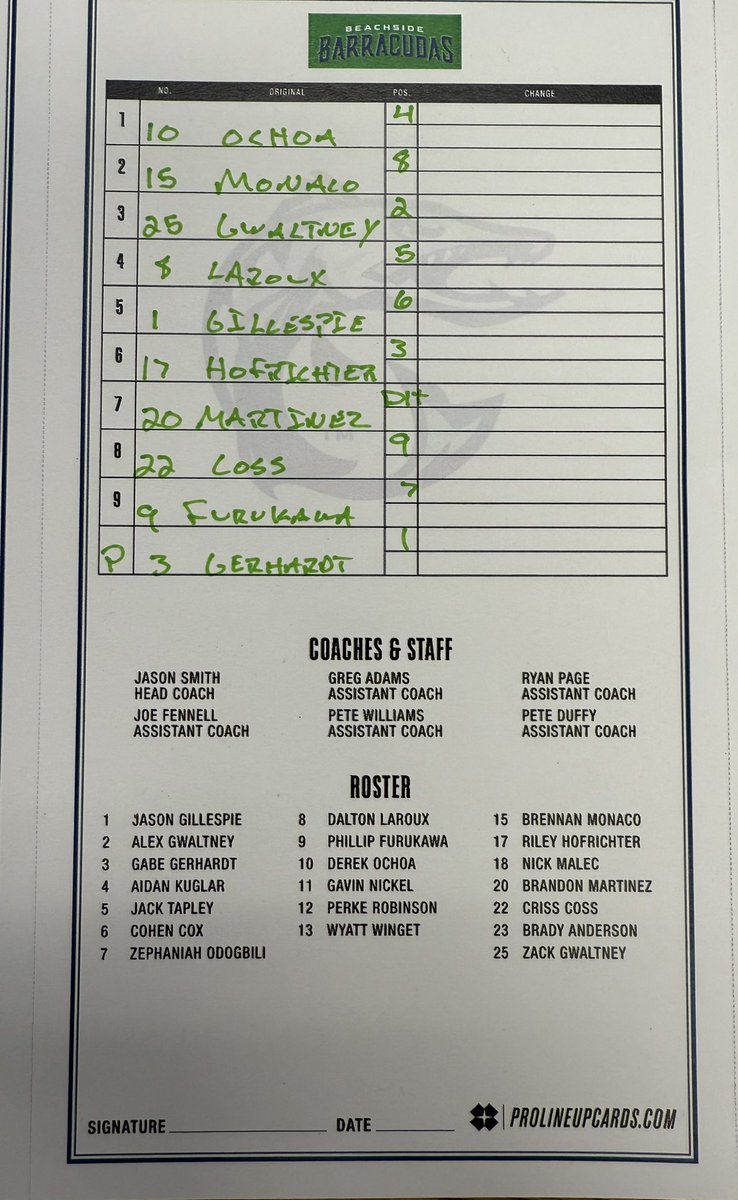 BEACHSIDE
BARRACUDAS
NO. ORIGINAL POS. CHANGE
1 10 OCHOA 4
2 15 MONACO 8
3 25 GWALTNEY 2
4 8 LAROUX 5
5 1 GILLESPIE 6
6 17 HOFRICHTER 3
7 20 MARTINEZ DH
8 22 COSS 9
9 9 FURUKAWA 7
P 3 GERHARDT 1
COACHES & STAFF
JASON SMITH GREG ADAMS RYAN PAGE
HEAD COACH ASSISTANT COACH ASSISTANT COACH
JOE FENNELL PETE WILLIAMS PETE DUFFY
ASSISTANT COACH ASSISTANT COACH ASSISTANT COACH
ROSTER
1 JASON GILLESPIE 8 DALTON LAROUX 15 BRENNAN MONACO
2 ALEX GWALTNEY 9 PHILLIP FURUKAWA 17 RILEY HOFRICHTER
3 GABE GERHARDT 10 DEREK OCHOA 18 NICK MALEC
4 AIDAN KUGLAR 11 GAVIN NICKEL 20 BRANDON MARTINEZ
5 JACK TAPLEY 12 PERKE ROBINSON 22 CRISS COSS
6 COHEN COX 13 WYATT WINGET 23 BRADY ANDERSON
7 ZEPHANIAH ODOGBILI 25 ZACK GWALTNEY
SIGNATURE DATE PROLINEUPCARDS.COM